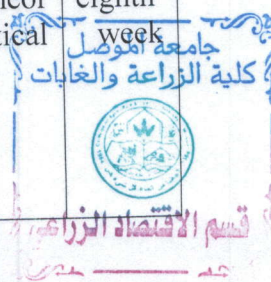 eighth
tical week
جامعة الموصل
كلية الزراعة والغابات
قسم الاقتصاد الزراعي